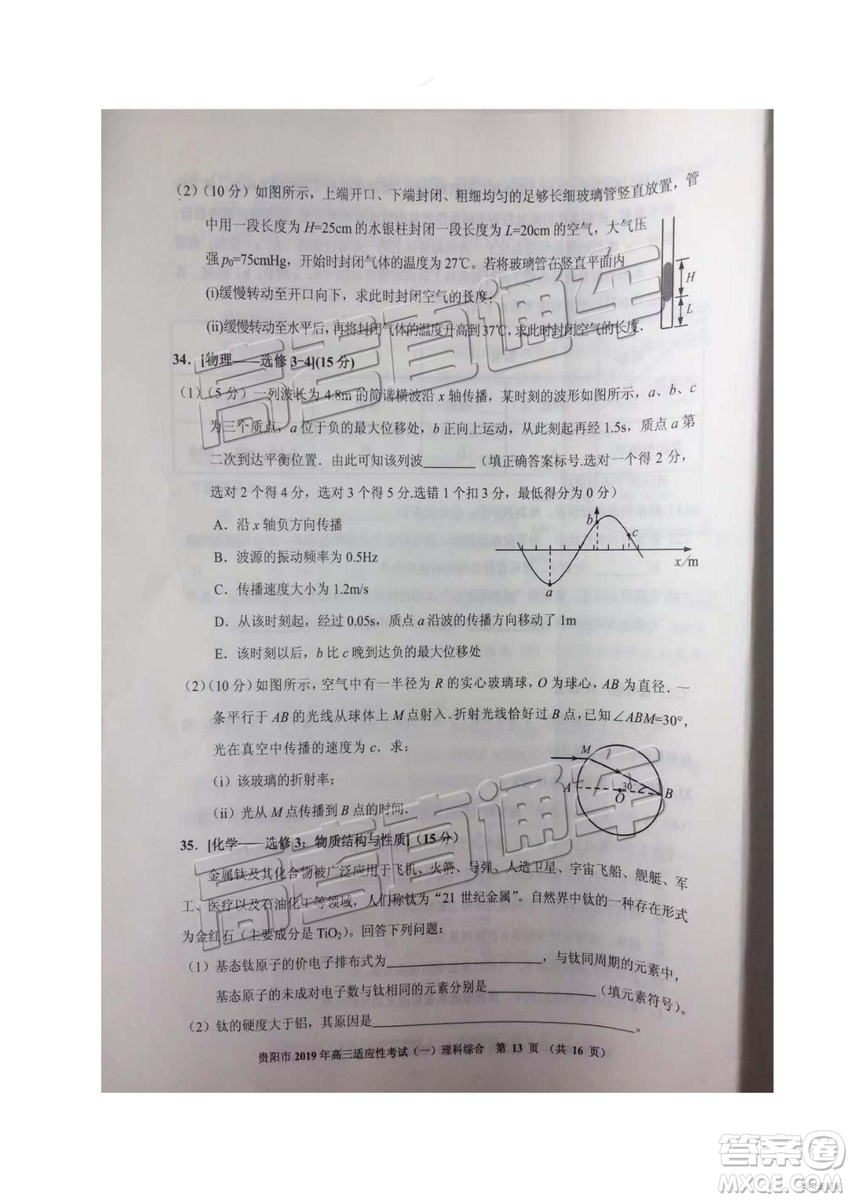 (2)(10 分) 如图所示，上端开口、下端封闭、粗细均匀的足够长细玻璃管竖直放置，管
中用一段长度为 H=25cm 的水银柱封闭一段长度为 L=20cm 的空气，大气压
强 p₀=75cmHg，开始时封闭气体的温度为 27℃。若将玻璃管在竖直平面内
(i)缓慢转动至开口向下，求此时封闭空气的长度；
(ii)缓慢转动至水平后，再将封闭气体的温度升高到 37℃，求此时封闭空气的长度.
H
L
34．[物理——选修 3-4](15 分)
（1）(5 分) 一列波长为 4.8m 的简谐横波沿 x 轴传播，某时刻的波形如图所示，a、b、c
为三个质点，a 位于负的最大位移处，b 正向上运动，从此刻起再经 1.5s，质点 a 第
二次到达平衡位置．由此可知该列波________（填正确答案标号.选对一个得 2 分，
选对 2 个得 4 分，选对 3 个得 5 分.选错 1 个扣 3 分，最低得分为 0 分）
A．沿 x 轴负方向传播
B．波源的振动频率为 0.5Hz
C．传播速度大小为 1.2m/s
D．从该时刻起，经过 0.05s，质点 a 沿波的传播方向移动了 1m
E．该时刻以后，b 比 c 晚到达负的最大位移处
b
c
x/m
a
(2)(10 分) 如图所示，空气中有一半径为 R 的实心玻璃球，O 为球心，AB 为直径．一
条平行于 AB 的光线从球体上 M 点射入.折射光线恰好过 B 点，已知∠ABM=30°，
光在真空中传播的速度为 c．求：
（i）该玻璃的折射率；
（ii）光从 M 点传播到 B 点的时间.
M
A
30
O
B
35．[化学——选修 3：物质结构与性质]（15 分）
金属钛及其化合物被广泛应用于飞机、火箭、导弹、人造卫星、宇宙飞船、舰艇、军
工、医疗以及石油化工等领域，人们称钛为“21 世纪金属”。自然界中钛的一种存在形式
为金红石（主要成分是 TiO₂）。回答下列问题：
（1）基态钛原子的价电子排布式为________________，与钛同周期的元素中，
基态原子的未成对电子数与钛相同的元素分别是________________（填元素符号）。
（2）钛的硬度大于铝，其原因是________________。
贵阳市 2019 年高三适应性考试（一）理科综合 第 13 页 （共 16 页）
高考直通车
高考直通车
答案圈
MXQE.COM